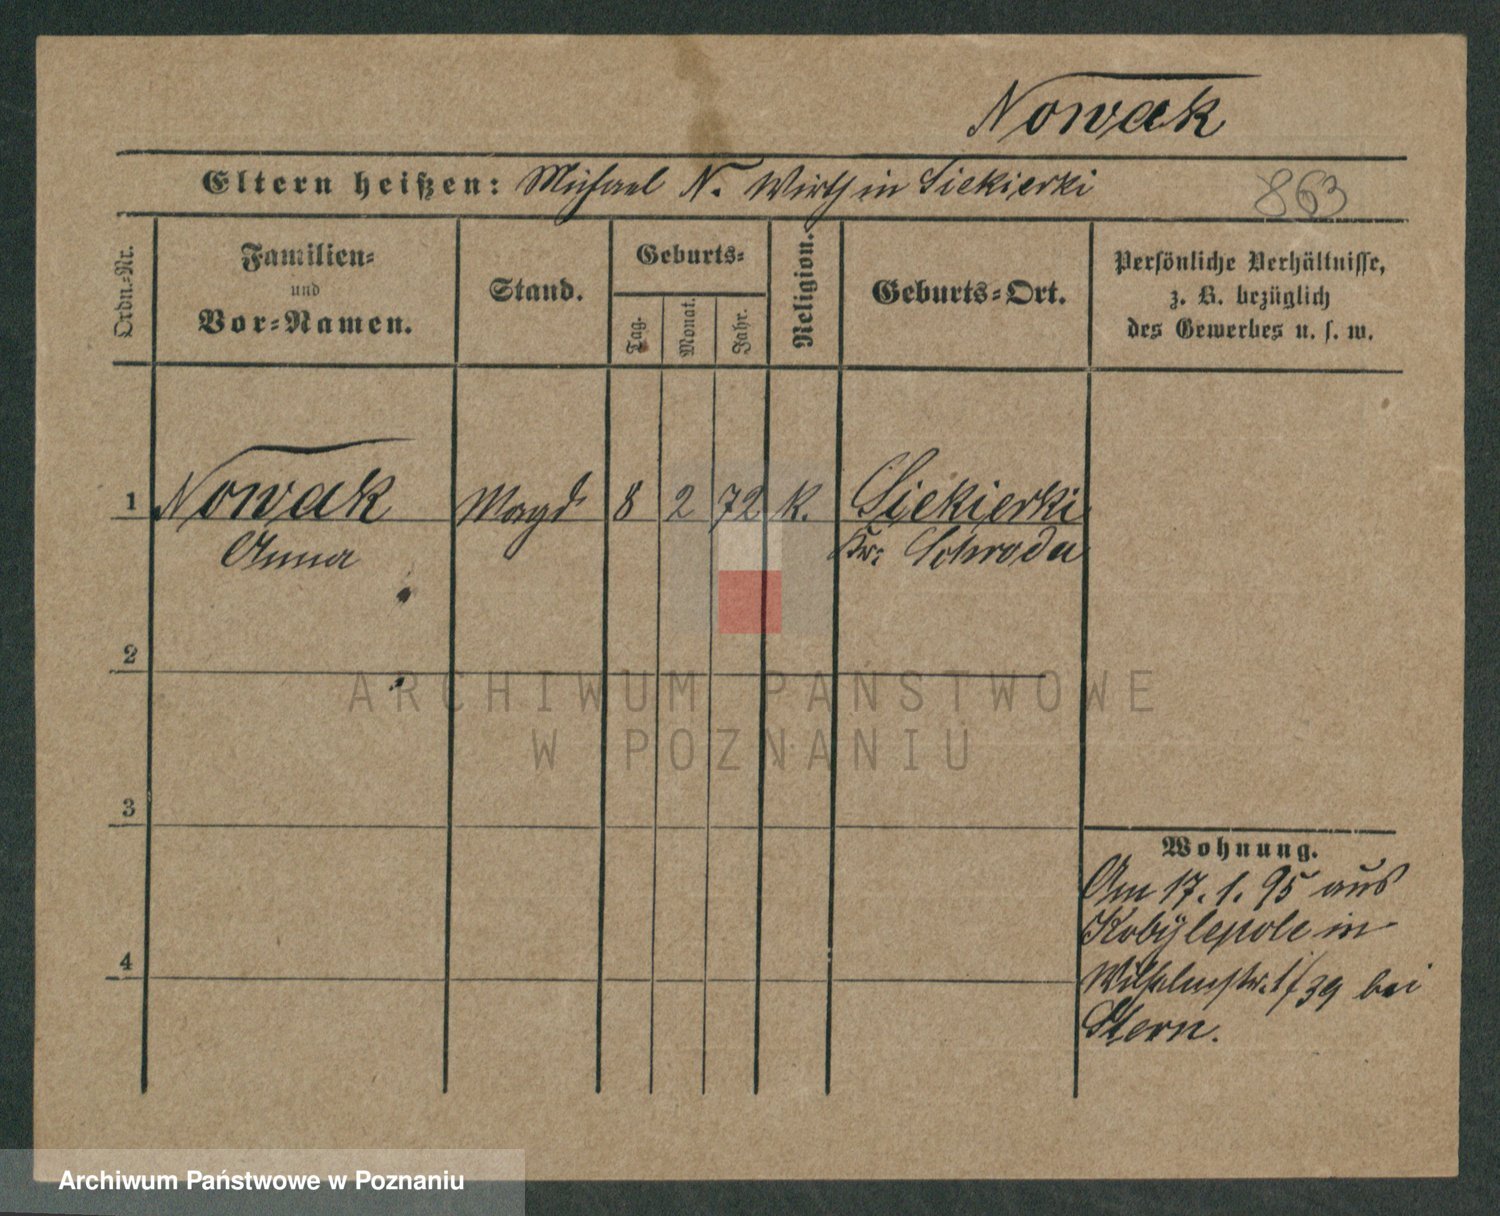 Nowak
Eltern heißen: Michael N. Wirth in Siekierki
863
Ordn.-Nr.
Familien-
und
Vor-Namen.
Stand.
Geburts-
Tag.
Monat.
Jahr.
Religion.
Geburts-Ort.
Persönliche Verhältnisse,
z. B. bezüglich
des Gewerbes u. s. w.
1 Nowak Magd 8 2 72 K. Siekierki
Anna Kr. Schroda
2
3
4
Wohnung.
Am 17. 1. 95 aus
Kobylepole in
Wilhelmstr. 1/39 bei
Stern.
ARCHIWUM PAŃSTWOWE
W POZNANIU
Archiwum Państwowe w Poznaniu